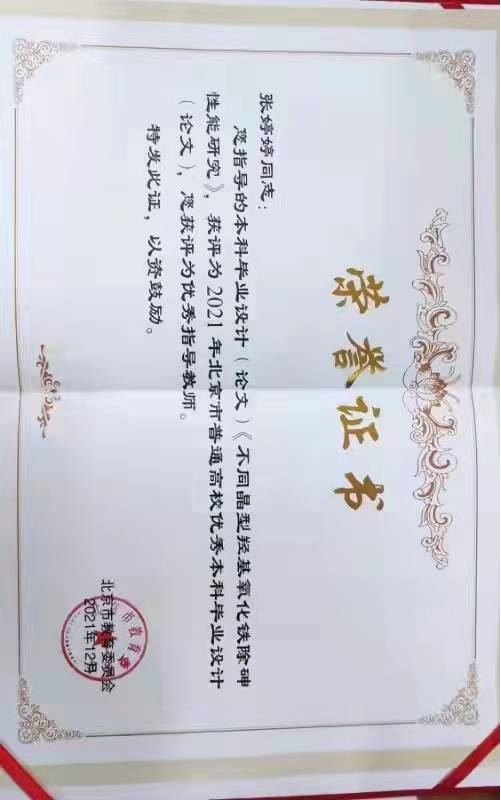 荣誉证书
张婷婷同志：
您指导的本科毕业设计（论文）《不同晶型羟基氧化铁除砷
性能研究》，获评为2021年北京市普通高校优秀本科毕业设计
（论文），您获评为优秀指导教师。
特发此证，以资鼓励。
北京市教育委员会
2021年12月